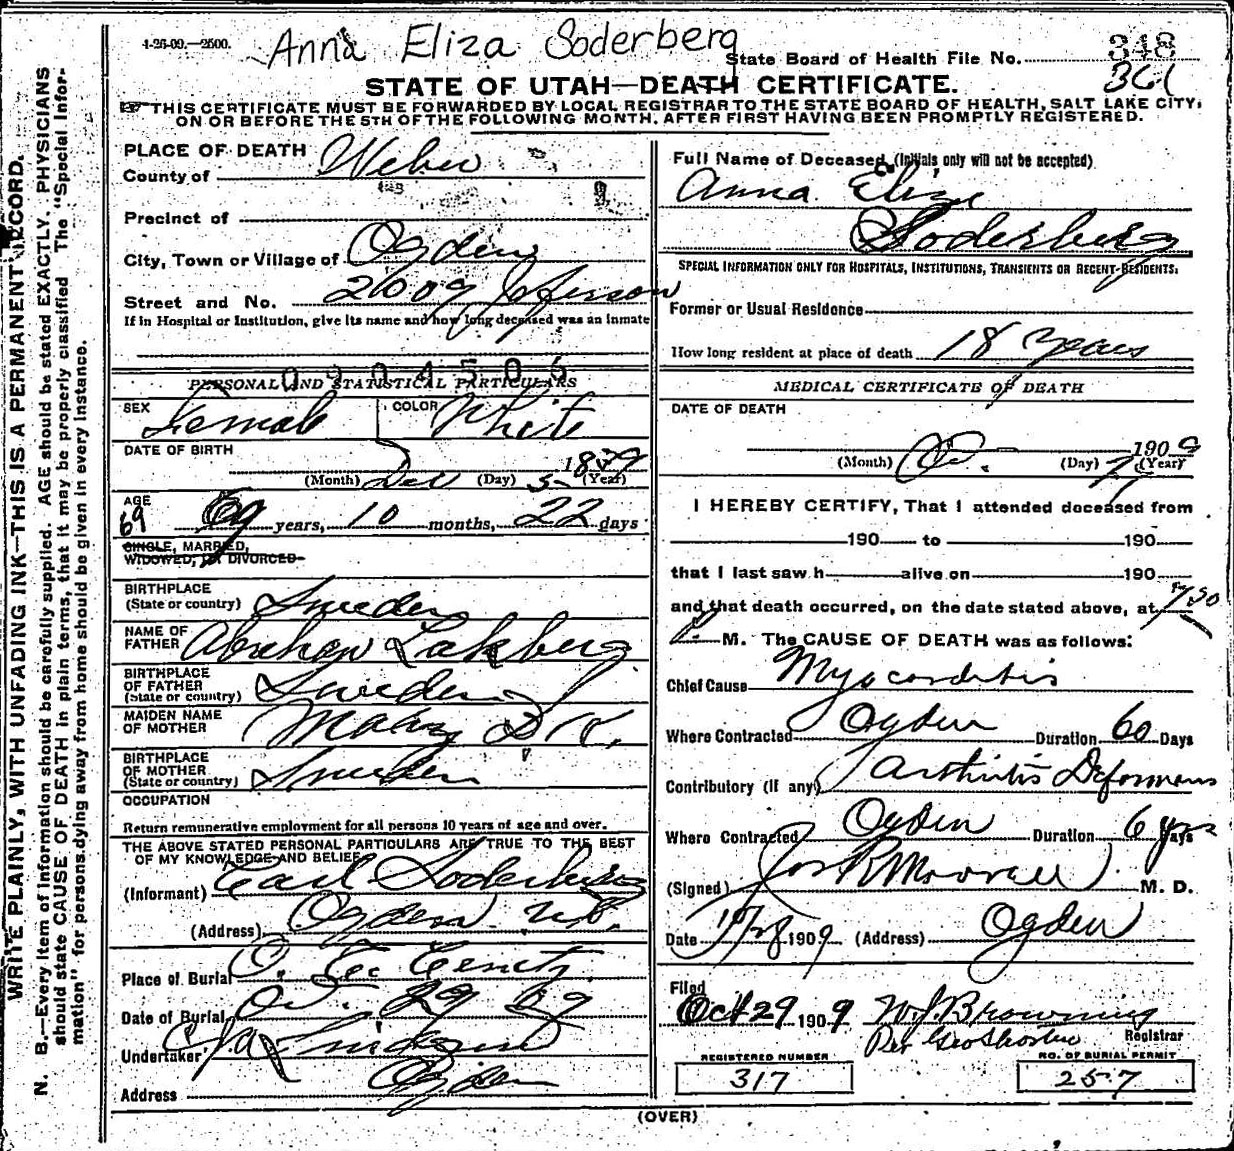 1-26-09.—2500.
Anna Eliza Soderberg
State Board of Health File No. 348
361
STATE OF UTAH—DEATH CERTIFICATE.
THIS CERTIFICATE MUST BE FORWARDED BY LOCAL REGISTRAR TO THE STATE BOARD OF HEALTH, SALT LAKE CITY,
ON OR BEFORE THE 5TH OF THE FOLLOWING MONTH, AFTER FIRST HAVING BEEN PROMPTLY REGISTERED.
WRITE PLAINLY, WITH UNFADING INK—THIS IS A PERMANENT RECORD.
N. B.—Every item of information should be carefully supplied. AGE should be stated EXACTLY. PHYSICIANS
should state CAUSE OF DEATH in plain terms, that it may be properly classified The "Special Infor-
mation" for persons dying away from home should be given in every instance.
PLACE OF DEATH
County of Weber
Precinct of
City, Town or Village of Ogden
Street and No. 2609 Jefferson
If in Hospital or Institution, give its name and how long deceased was an inmate
0904506
PERSONAL AND STATISTICAL PARTICULARS
SEX Female COLOR White
DATE OF BIRTH
(Month) Dec (Day) 5 1839 (Year)
AGE
69 69 years, 10 months, 22 days
SINGLE, MARRIED,
WIDOWED, OR DIVORCED
BIRTHPLACE
(State or country) Sweden
NAME OF
FATHER Abraham
BIRTHPLACE
OF FATHER
(State or country) Sweden
MAIDEN NAME
OF MOTHER Mary D.K.
BIRTHPLACE
OF MOTHER
(State or country) Sweden
OCCUPATION
Return remunerative employment for all persons 10 years of age and over.
THE ABOVE STATED PERSONAL PARTICULARS ARE TRUE TO THE BEST
OF MY KNOWLEDGE AND BELIEF
(Informant) Carl Soderberg
(Address) Ogden Ut.
Place of Burial O. City Cemety
Date of Burial Oct. 29 09
Undertaker
Address Ogden
Full Name of Deceased (Initials only will not be accepted)
Anna Eliza
Soderberg
SPECIAL INFORMATION ONLY FOR HOSPITALS, INSTITUTIONS, TRANSIENTS OR RECENT RESIDENTS.
Former or Usual Residence
How long resident at place of death 18 years
MEDICAL CERTIFICATE OF DEATH
DATE OF DEATH
1909
(Month) Oct. (Day) 27 (Year)
I HEREBY CERTIFY, That I attended deceased from
190 to 190
that I last saw h alive on 190
and that death occurred, on the date stated above, at 7:30
P. M. The CAUSE OF DEATH was as follows:
Chief Cause Myocarditis
Where Contracted Ogden Duration 60 Days
Contributory (if any) Arthritis Deformans
Where Contracted Ogden Duration 6 yrs Days
(Signed) Jos R Morrell M. D.
Date 10/28 1909 (Address) Ogden
Filed
Oct 29 1909 W.J. Browning
Per Geo Shorten Registrar
REGISTERED NUMBER
317
NO. OF BURIAL PERMIT
257
(OVER)